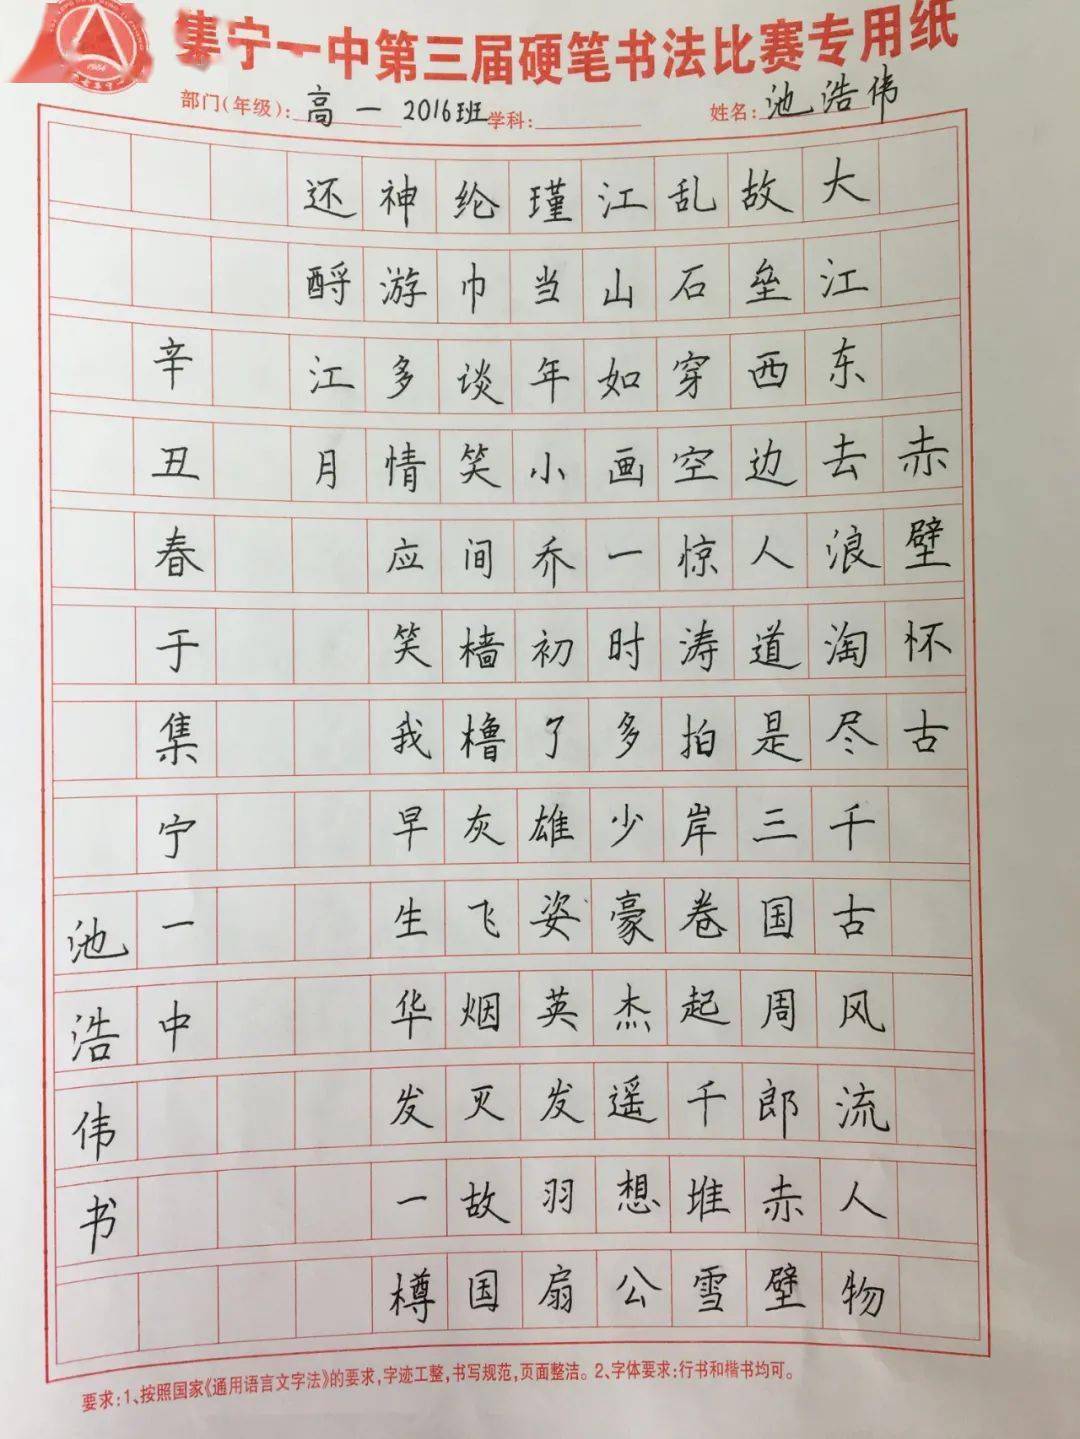 集宁一中第三届硬笔书法比赛专用纸
部门(年级):高一2016班 学科: 姓名:池浩伟
赤壁怀古
大江东去浪淘尽千古风流人物
故垒西边人道是三国周郎赤壁
乱石穿空惊涛拍岸卷起千堆雪
江山如画一时多少豪杰遥想公
瑾当年小乔初了雄姿英发羽扇
纶巾谈笑间樯橹灰飞烟灭故国
神游多情应笑我早生华发一樽
还酹江月
辛丑春于集宁一中
池浩伟书
要求:1、按照国家《通用语言文字法》的要求,字迹工整,书写规范,页面整洁。2、字体要求:行书和楷书均可。